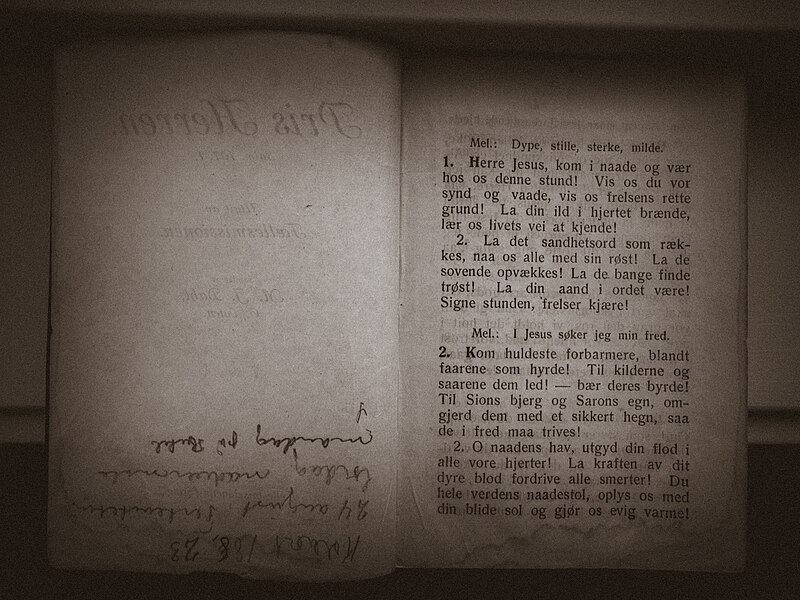 Pris Herren.
Fællesmissionen.
mandag på
lørdag
24 august
Mel.: Dype, stille, sterke, milde.
1. Herre Jesus, kom i naade og vær
hos os denne stund! Vis os du vor
synd og vaade, vis os frelsens rette
grund! La din ild i hjertet brænde,
lær os livets vei at kjende!
2. La det sandhetsord som ræk-
kes, naa os alle med sin røst! La de
sovende opvækkes! La de bange finde
trøst! La din aand i ordet være!
Signe stunden, frelser kjære!
Mel.: I Jesus søker jeg min fred.
2. Kom huldeste forbarmere, blandt
faarene som hyrde! Til kilderne og
saarene dem led! — bær deres byrde!
Til Sions bjerg og Sarons egn, om-
gjerd dem med et sikkert hegn, saa
de i fred maa trives!
2. O naadens hav, utgyd din flod i
alle vore hjerter! La kraften av dit
dyre blod fordrive alle smerter! Du
hele verdens naadestol, oplys os med
din blide sol og gjør os evig varme!